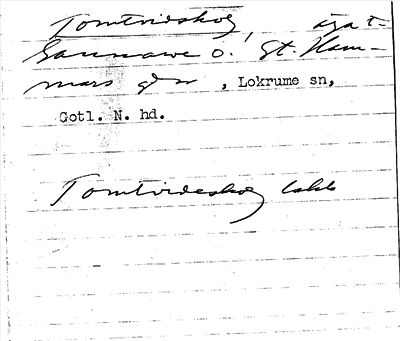 Tomtvidskog, äga t.
Gannarve o. St. Ham-
mars gdr, Lokrume sn,
Gotl. N. hd.
Tomtvideskog